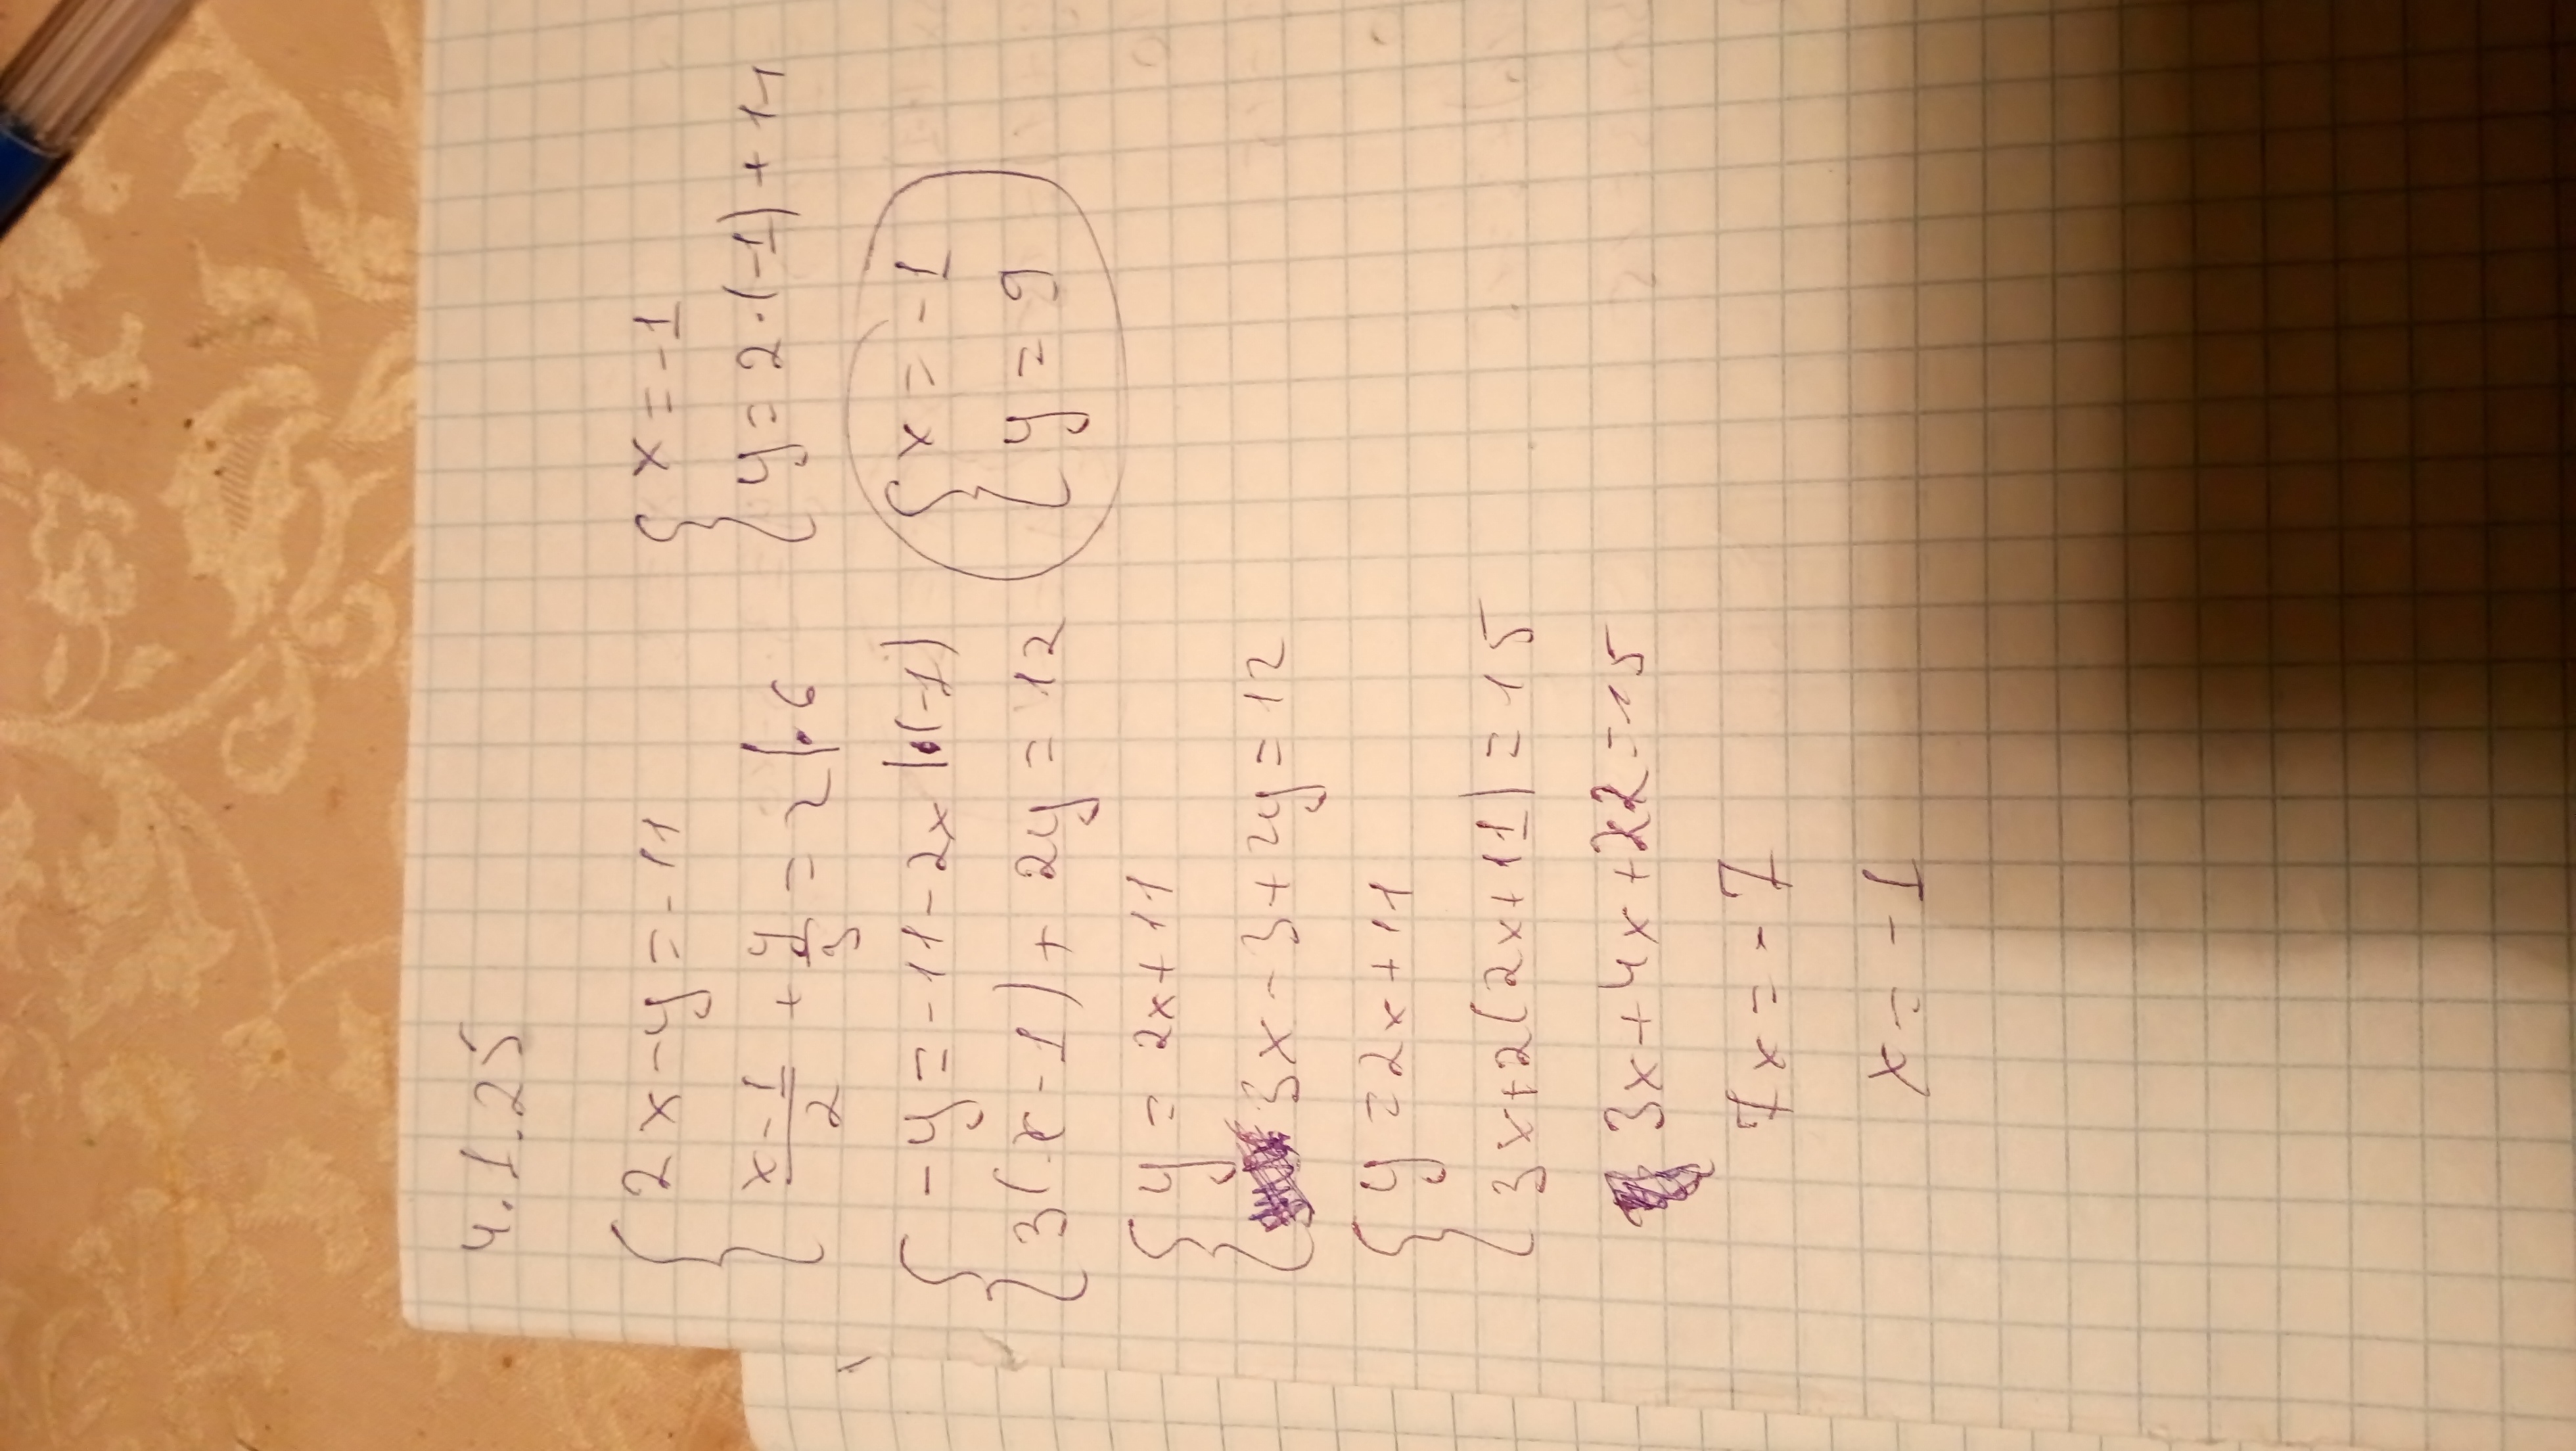 4.1.25
{ 2x-y=-11
x-1/2 + y/3 = 2 |·6
{ -y=-11-2x |·(-1)
3(x-1)+2y=12
{ y=2x+11
3x-3+2y=12
{ y=2x+11
3x+2(2x+11)=15
3x+4x+22=15
7x=-7
x=-1
{ x=-1
y=2·(-1)+11
{ x=-1
y=9